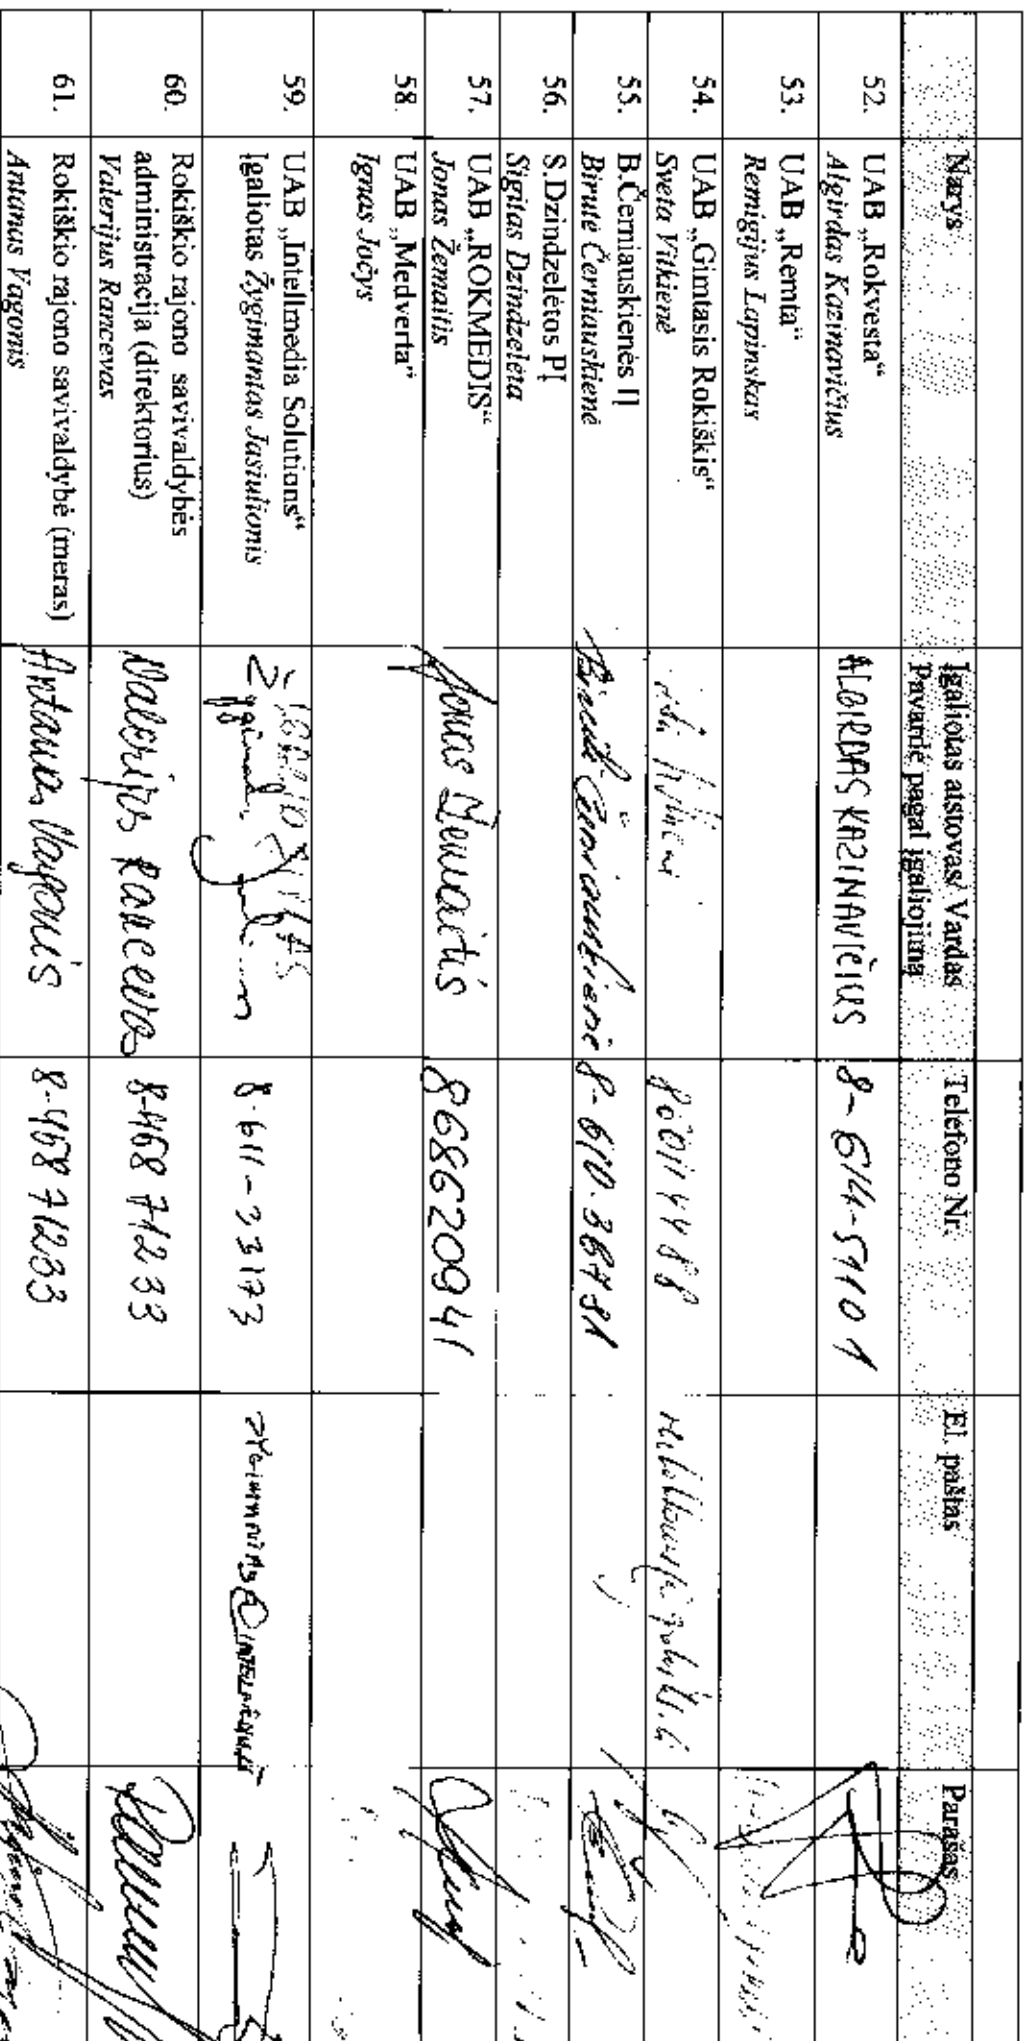 Narys
Įgaliotas atstovas/ Vardas
Pavardė pagal įgaliojimą
Telefono Nr.
El. paštas
Parašas
52.
UAB „Rokvesta“
Algirdas Kazinavičius
ALGIRDAS KAZINAVIČIUS
8-614-57101
53.
UAB „Remta“
Remigijus Lapinskas
54.
UAB „Gimtasis Rokiškis“
Sveta Vitkienė
55.
B.Černiauskienės IĮ
Birutė Černiauskienė
Birutė Černiauskienė
8-610-38781
56.
S.Dzindzelėtos PĮ
Sigitas Dzindzelėta
57.
UAB „ROKMEDIS“
Jonas Žemaitis
Jonas Žemaitis
868620941
58.
UAB „Medverta“
Ignas Jočys
59.
UAB „Intellmedia Solutions“
Įgaliotas Žygimantas Jasiulionis
8-611-33173
60.
Rokiškio rajono savivaldybės
administracija (direktorius)
Valerijus Rancevas
Valerijus Rancevas
8-458 71233
61.
Rokiškio rajono savivaldybė (meras)
Antanas Vagonis
Antanas Vagonis
8-458 71233